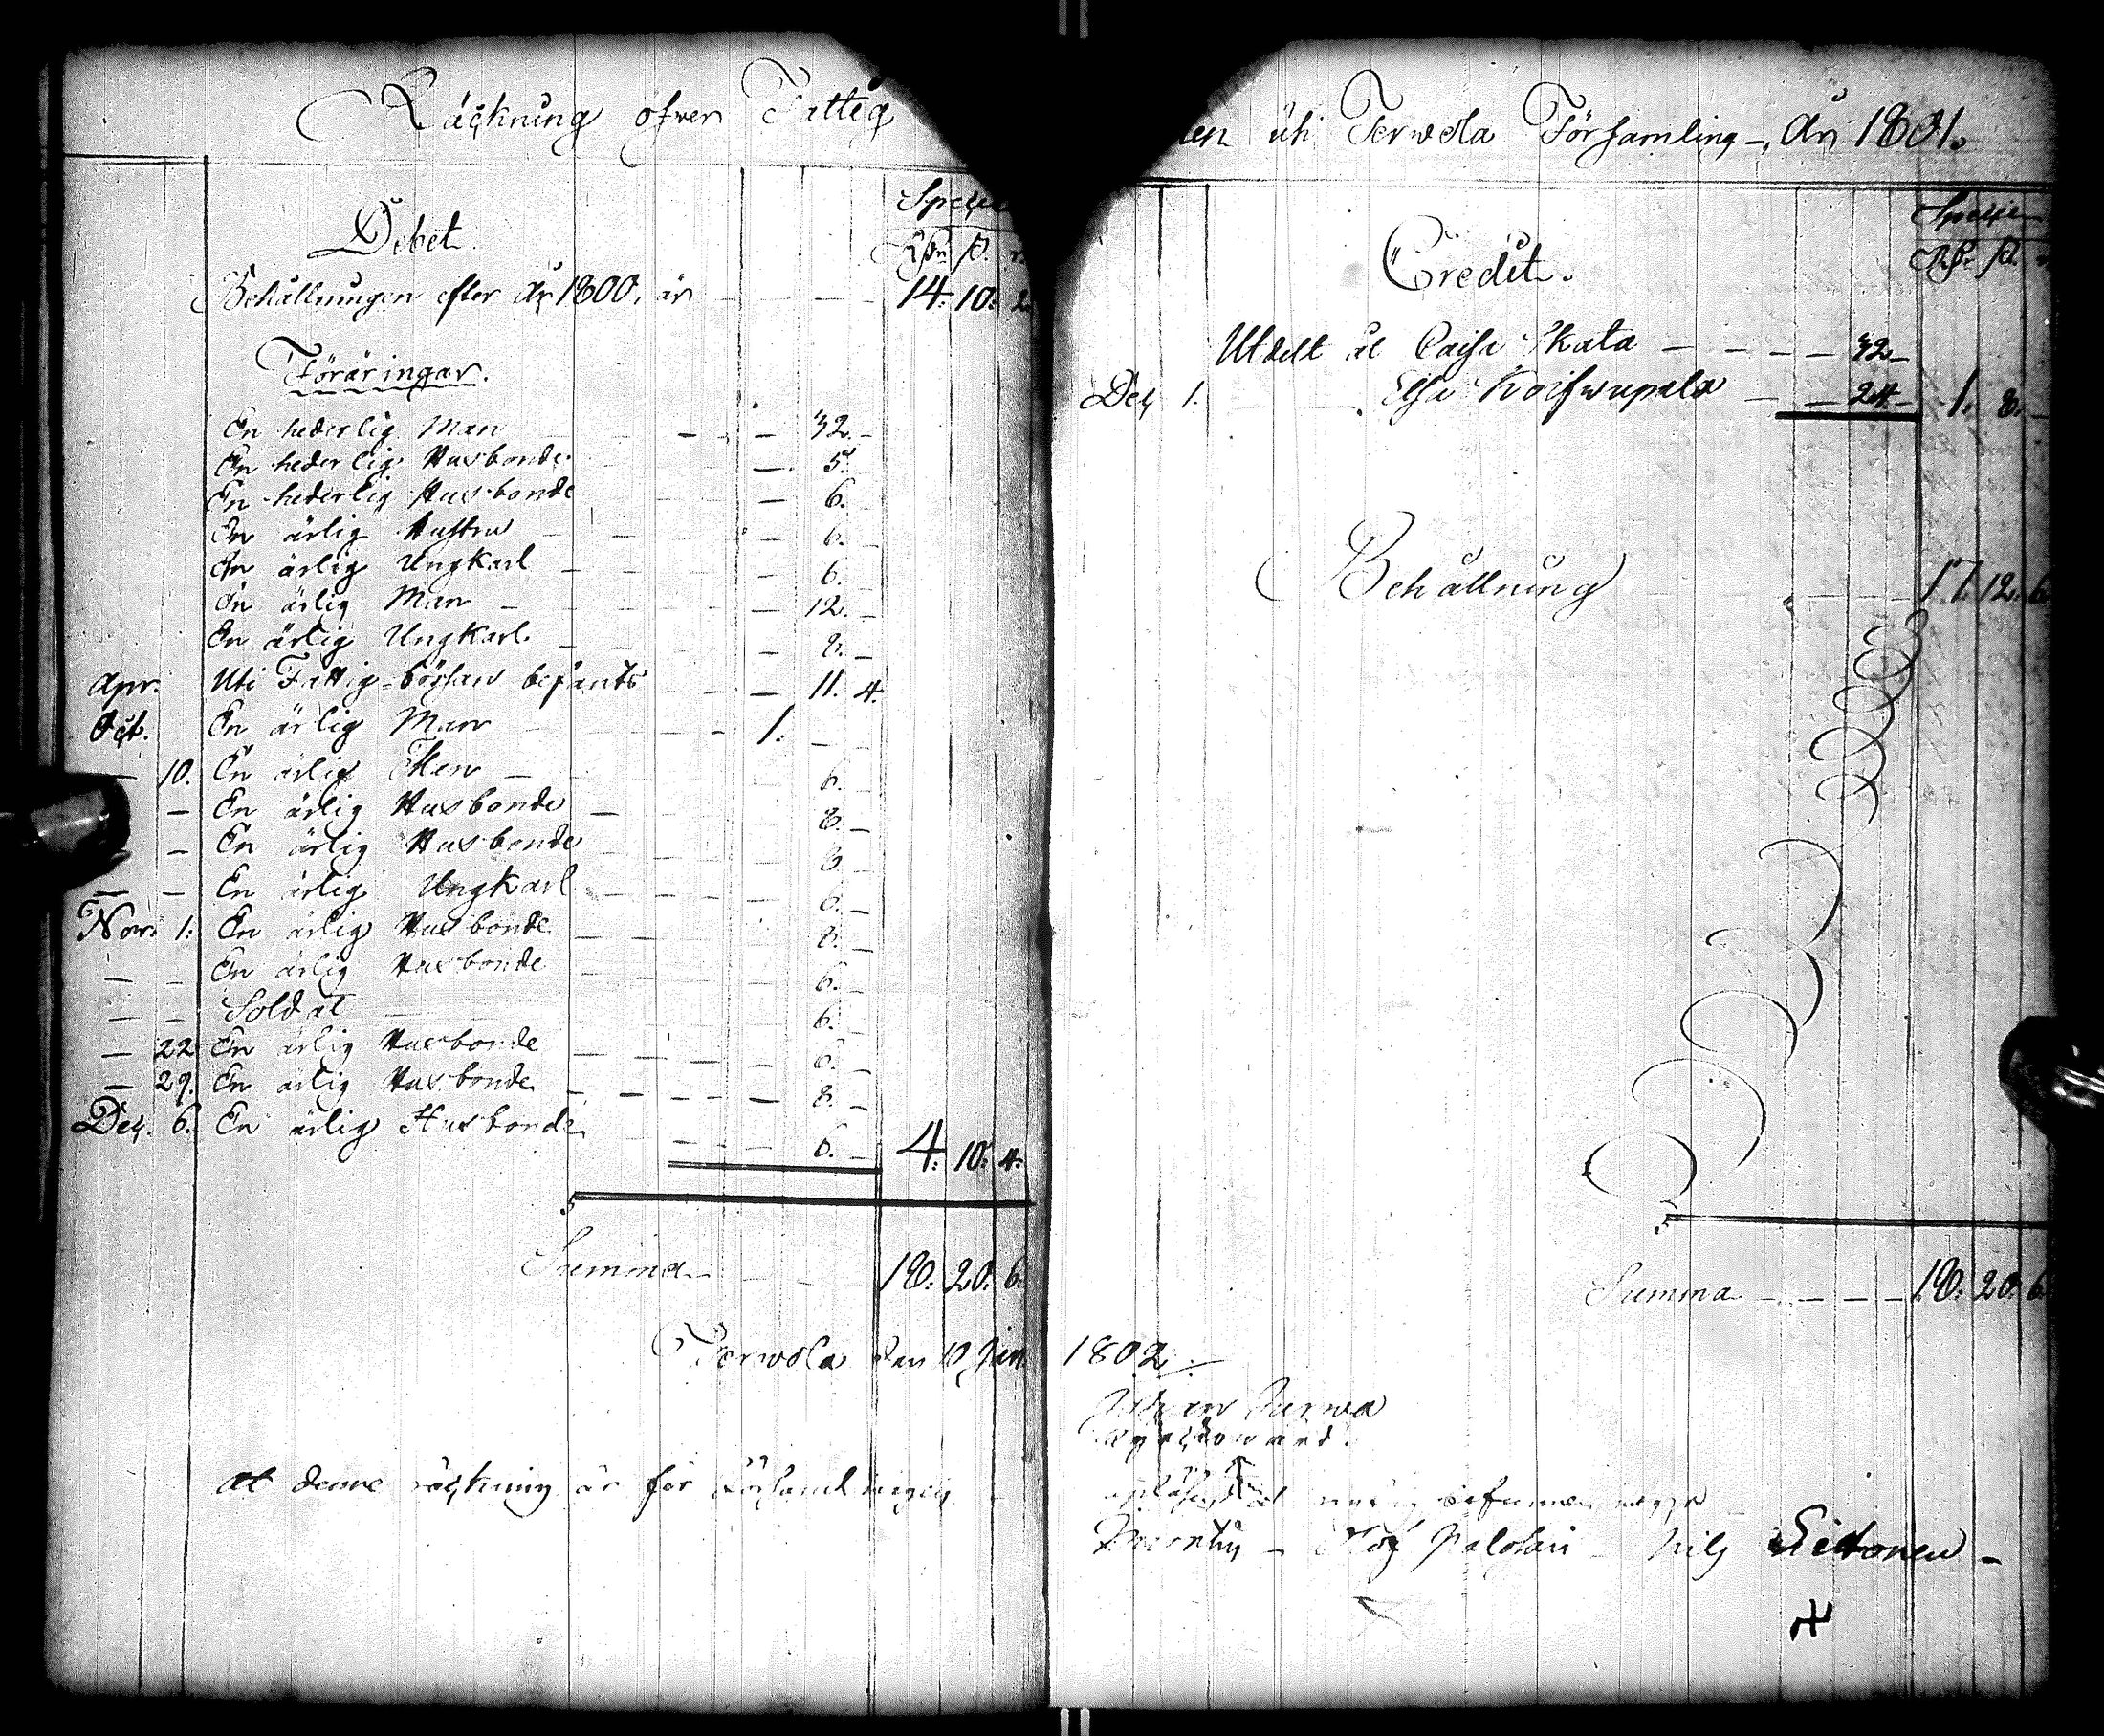 Räckning öfwer Fattig
Debet
Specie
Rdr ß. r.
Behållningen efter År 1800. är — — 14. 10. 2
Föräringar.
En hederlig Man — — — 32. —
En hederlig Husbonde — 5.
En hederlig Husbonde — 6.
En ärlig Hustru — — — 6. —
En ärlig Ungkarl — — — 6.
En ärlig Man — — — 12. —
En ärlig Ungkarl. — — — 8. —
Apr. Uti Fattig-börsan befants — — 11. 4.
Oct. En ärlig Man — — — 1. — —
— 10. En ärlig Man — — 6. —
— En ärlig Husbonde — — 8. —
— En ärlig Husbonde — — 6. —
— — En ärlig Ungkarl — — — 6. —
Nov. 1. En ärlig Husbonde — — — 8. —
— — En ärlig Husbonde — — — 6. —
— — Soldat — — 6. —
— 22 En ärlig Husbonde — — — 6. —
— 29. En ärlig Husbonde — — — — 8. —
Dec. 6. En ärlig Husbonde — — — 6. — 4. 10. 4.
Summa — — — 18. 20. 6.
Terwola den 10 Jan.
at denne räckning är för Församlingen
en uti Terwola Församling —, År 1801.
Credit.
Specie
Rdr ß.
Utdelt åt Caisa Skata — — — — 32 —
Dec 1. — — Elsa Koifwupalo — — 24 — 1. 8. —
Behållning — — — 17. 12. 6.
Summa — — — — 18. 20. 6
1802.
Johan Jurwa
Kyrckowärd.
upläsen och riktig befunnen
Olof Palosari — Nils Sitonen —